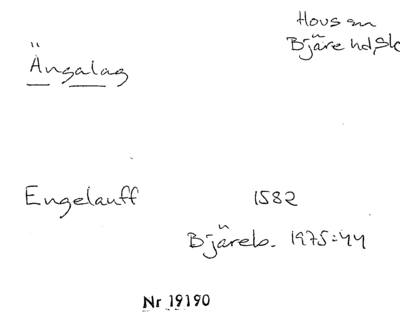 Hovs sn
Bjäre hd, Sk
Ängalag
Engelauff 1582
Bjäreb. 1975:44
Nr 19190